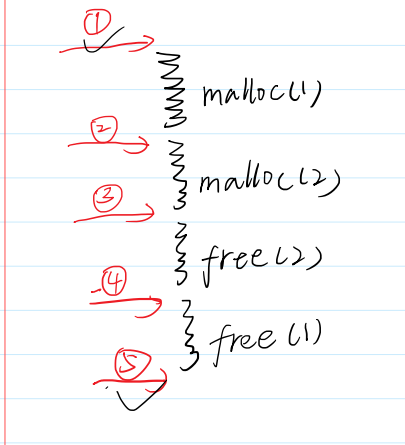 ①
malloc(1)
②
malloc(2)
③
free(2)
④
free(1)
⑤